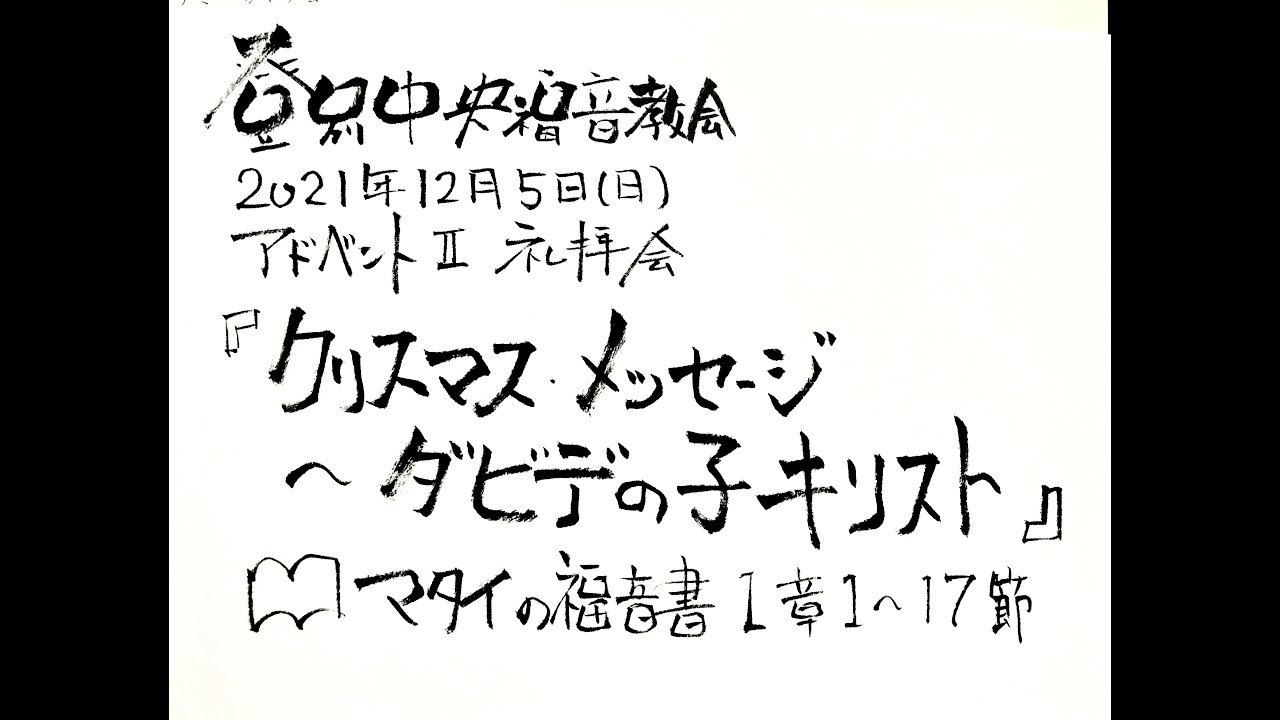 登別中央福音教会
2021年12月5日(日)
アドベントⅡ 礼拝会
『クリスマス・メッセージ
〜ダビデの子キリスト』
マタイの福音書 1章1〜17節